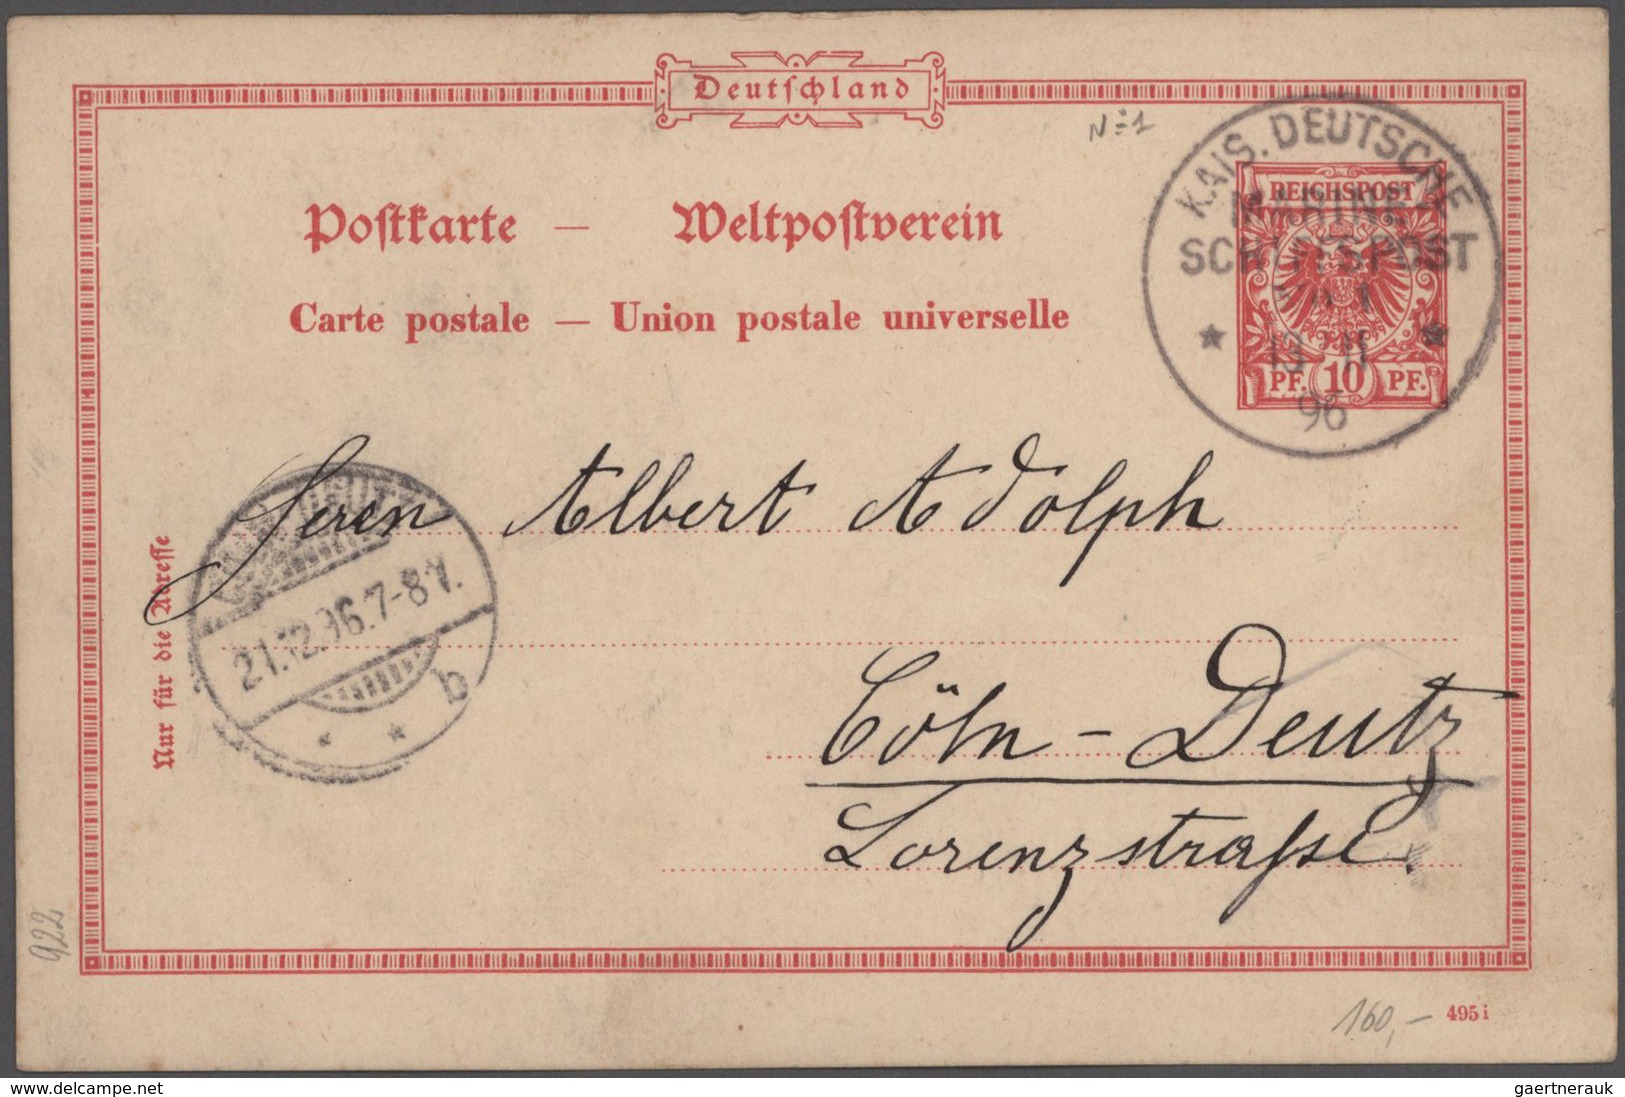 Deutschland
N=1
Postkarte — Weltpostverein
Carte postale — Union postale universelle
KAIS. DEUTSCHE
MARINE-
SCHIFFSPOST
No 1
13 11
96
REICHSPOST
PF. 10 PF.
DEUTZ
21.12.96.7-8V.
b
Herrn Albert Adolph
Cöln-Deutz
Lorenzstraſse.
Nur für die Adresse
922
160,-
495 i
www.delcampe.net
gaertnerauk